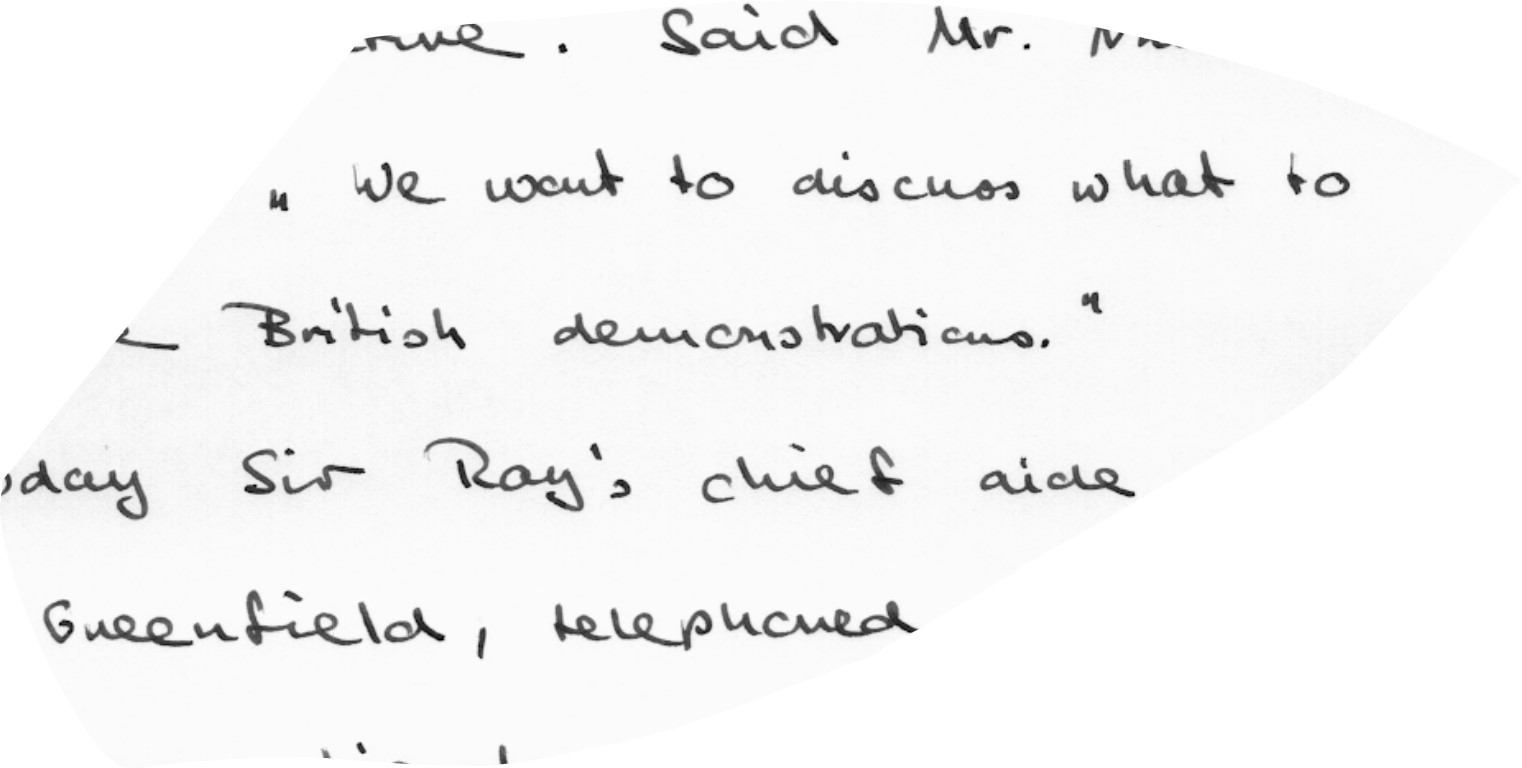 . Said Mr.
„ We want to discuss what to
British demonstrations."
Sir Roy's chief aide
Greenfield, telephoned